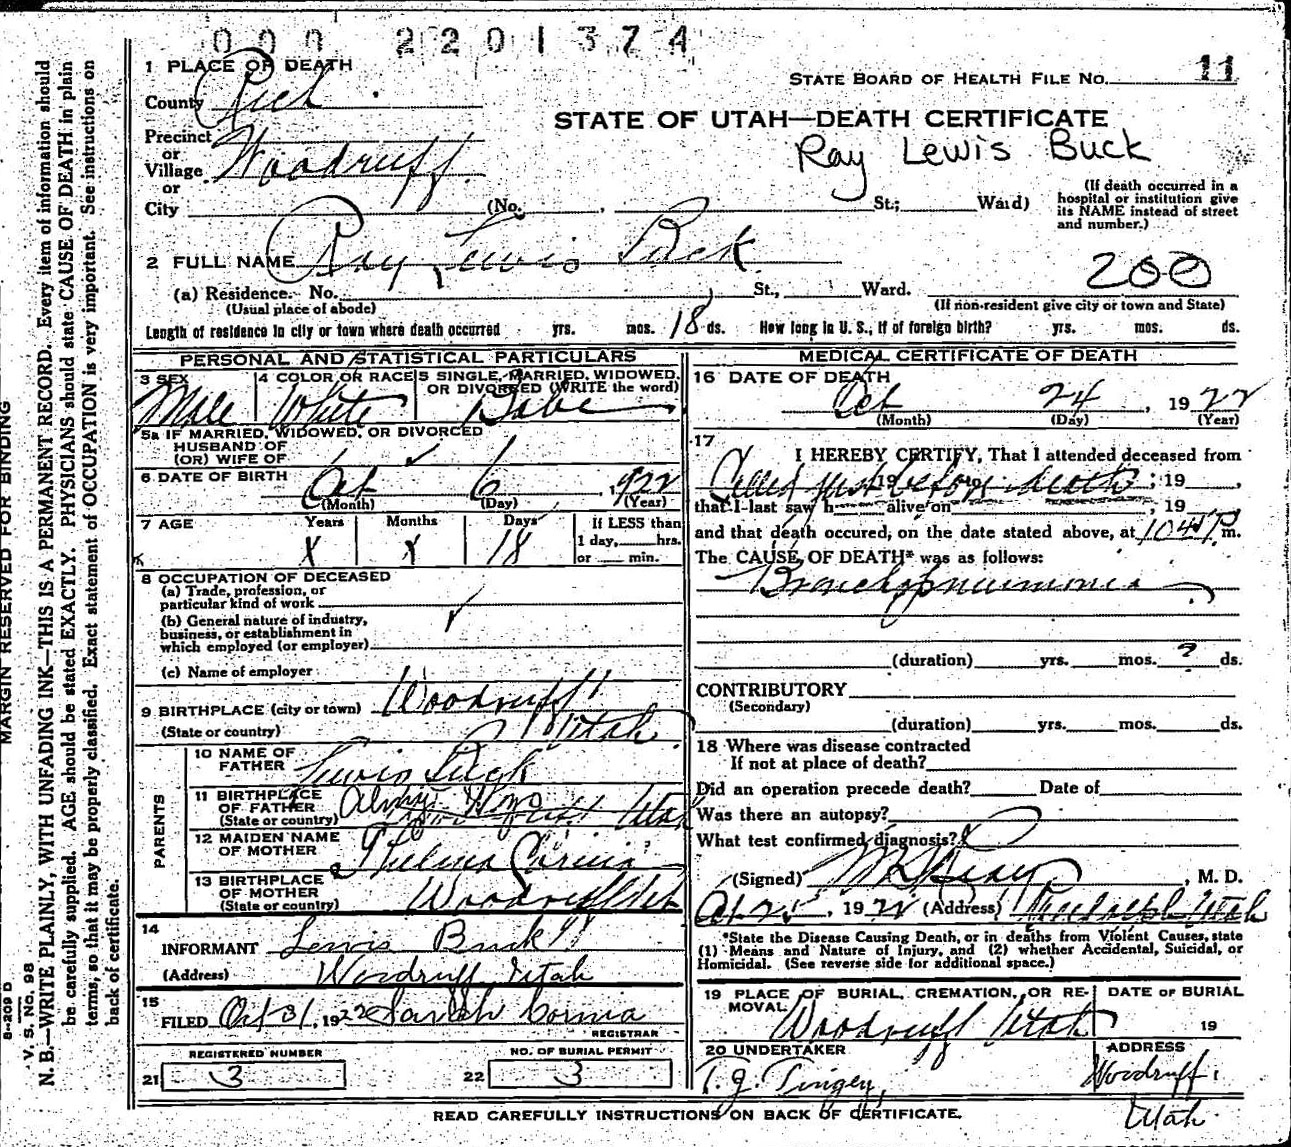 000 2201374
1 PLACE OF DEATH
STATE BOARD OF HEALTH FILE No. 11
County Rich
STATE OF UTAH—DEATH CERTIFICATE
Ray Lewis Buck
Precinct
or
Village Woodruff
or
City (No. , St.; Ward)
(If death occurred in a
hospital or institution give
its NAME instead of street
and number.)
2 FULL NAME Ray Lewis Buck
200
(a) Residence. No. St., Ward.
(Usual place of abode)
(If non-resident give city or town and State)
Length of residence in city or town where death occurred yrs. mos. 18 ds. How long in U. S., if of foreign birth? yrs. mos. ds.
PERSONAL AND STATISTICAL PARTICULARS
3 SEX 4 COLOR OR RACE 5 SINGLE, MARRIED, WIDOWED,
OR DIVORCED (WRITE the word)
Male White Babe
5a IF MARRIED, WIDOWED, OR DIVORCED
HUSBAND OF
(OR) WIFE OF
6 DATE OF BIRTH Oct 6, 1922
(Month) (Day) (Year)
7 AGE Years Months Days If LESS than
1 day, hrs.
or min.
X X 18
8 OCCUPATION OF DECEASED
(a) Trade, profession, or
particular kind of work
(b) General nature of industry,
business, or establishment in
which employed (or employer)
(c) Name of employer
9 BIRTHPLACE (city or town) Woodruff
(State or country) Utah
PARENTS
10 NAME OF
FATHER Lewis Buck
11 BIRTHPLACE
OF FATHER
(State or country) Utah
12 MAIDEN NAME
OF MOTHER Thelma Cornia
13 BIRTHPLACE
OF MOTHER
(State or country) Woodruff Utah
14
INFORMANT Lewis Buck
(Address) Woodruff Utah
15
FILED Oct 31, 1922 Sarah Cornia
REGISTRAR
REGISTERED NUMBER NO. OF BURIAL PERMIT
21 3 22 3
MEDICAL CERTIFICATE OF DEATH
16 DATE OF DEATH
Oct 24, 1922
(Month) (Day) (Year)
17
I HEREBY CERTIFY, That I attended deceased from
Called just before death 19 to ; 19 ,
that I last saw h alive on , 19
and that death occured, on the date stated above, at 1045 P. m.
The CAUSE OF DEATH* was as follows:
Bronchopneumonia
(duration) yrs. mos. ? ds.
CONTRIBUTORY
(Secondary)
(duration) yrs. mos. ds.
18 Where was disease contracted
If not at place of death?
Did an operation precede death? Date of
Was there an autopsy?
What test confirmed diagnosis?
(Signed) , M. D.
Oct 25, 1922 (Address) Randolph Utah
*State the Disease Causing Death, or in deaths from Violent Causes, state
(1) Means and Nature of Injury, and (2) whether Accidental, Suicidal, or
Homicidal. (See reverse side for additional space.)
19 PLACE OF BURIAL, CREMATION, OR RE-
MOVAL DATE OF BURIAL
Woodruff Utah 19
20 UNDERTAKER ADDRESS
T. J. Tingey, Woodruff,
Utah
READ CAREFULLY INSTRUCTIONS ON BACK OF CERTIFICATE.
MARGIN RESERVED FOR BINDING
S-209 D
V. S. No. 98
N. B.—WRITE PLAINLY, WITH UNFADING INK—THIS IS A PERMANENT RECORD. Every item of information should
be carefully supplied. AGE should be stated EXACTLY. PHYSICIANS should state CAUSE OF DEATH in plain
terms, so that it may be properly classified. Exact statement of OCCUPATION is very important. See instructions on
back of certificate.